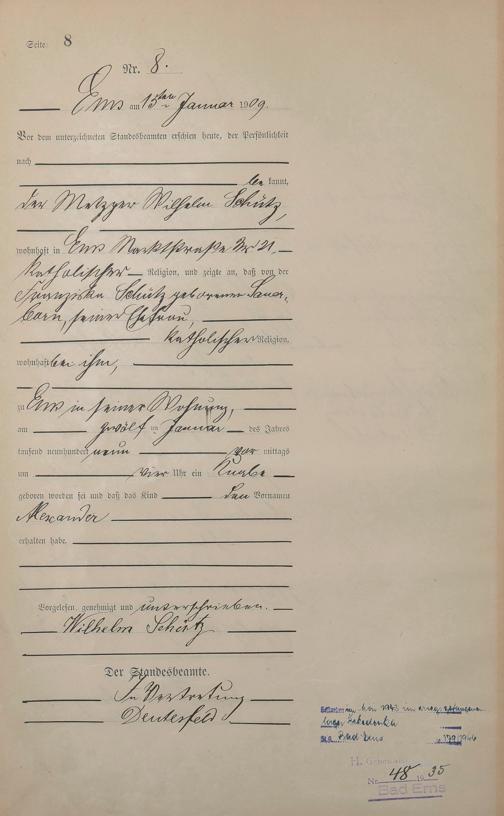 Seite: 8
Nr. 8.
Ems am 13ten Januar 1909.
Vor dem unterzeichneten Standesbeamten erschien heute, der Persönlichkeit
nach
be kannt,
der Metzger Wilhelm Schütz,
wohnhaft in Ems Marktstraße Nr 21,
katholischer Religion, und zeigte an, daß von der
Franziska Schütz geborenen Sauer-
born, seiner Ehefrau,
katholischer Religion,
wohnhaft bei ihm,
zu Ems in seiner Wohnung,
am zwölf ten Januar des Jahres
tausend neunhundert neun vor mittags
um vier Uhr ein Knabe
geboren worden sei und daß das Kind den Vornamen
Alexander
erhalten habe.
Vorgelesen, genehmigt und unterschrieben.
Wilhelm Schütz
Der Standesbeamte.
In Vertretung
Deutesfeld
1943 im
Bad Ems
Nr. 48 1935
Bad Ems